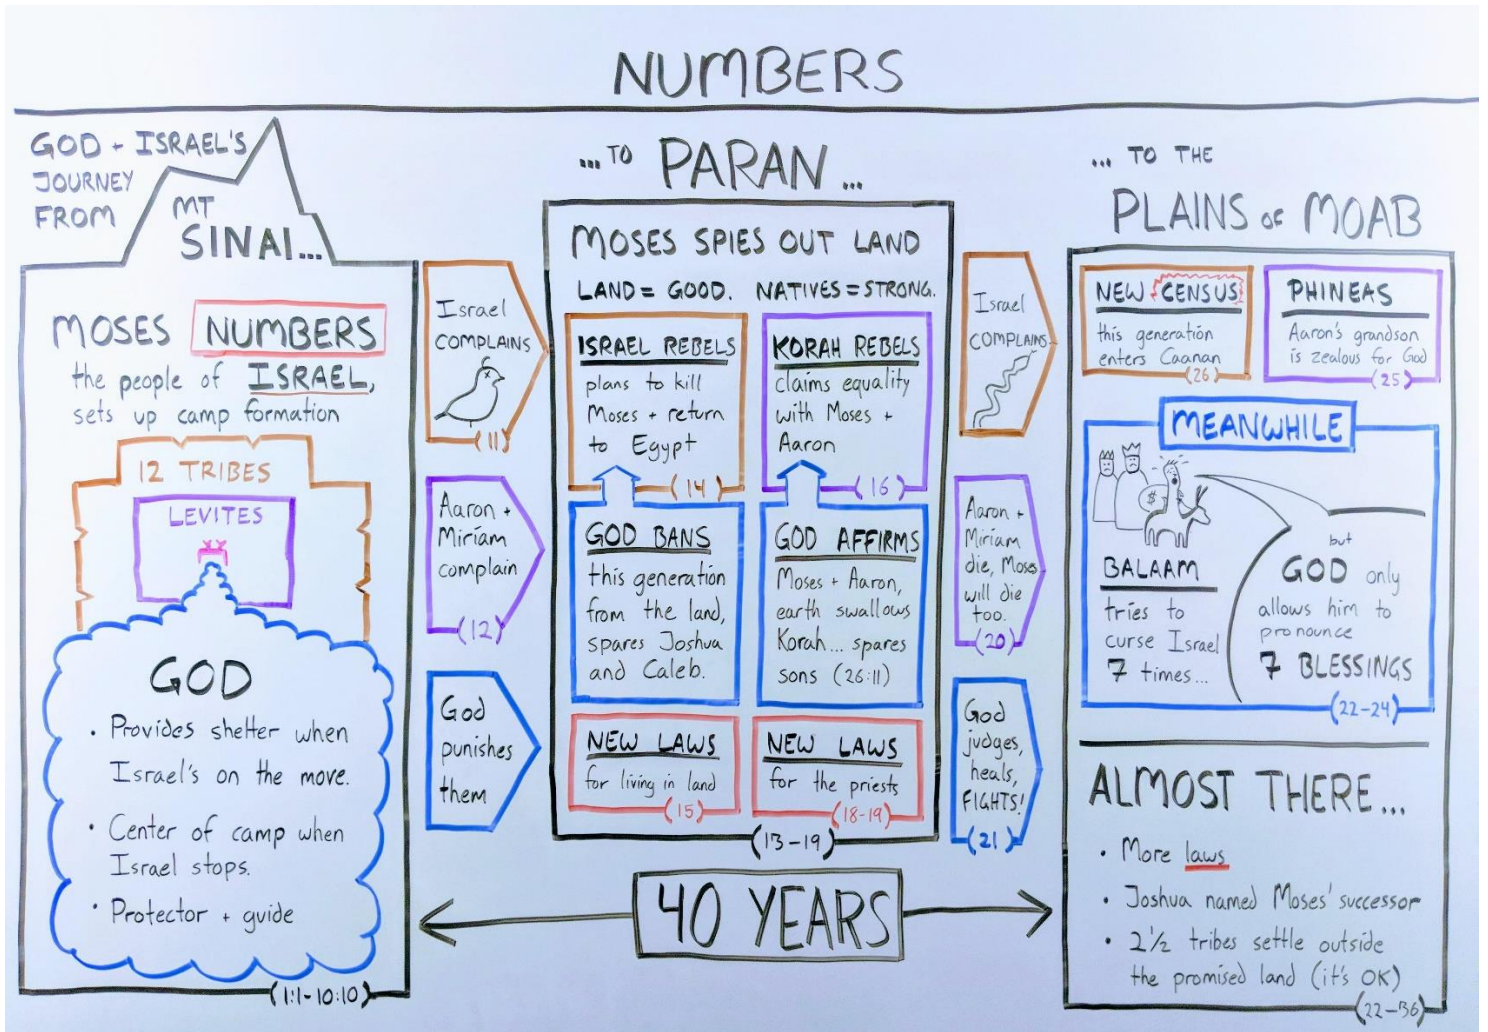 NUMBERS
GOD + ISRAEL'S
JOURNEY
FROM
MT
SINAI...
MOSES NUMBERS
the people of ISRAEL,
sets up camp formation
12 TRIBES
LEVITES
GOD
• Provides shelter when
Israel's on the move.
• Center of camp when
Israel stops.
• Protector + guide
(1:1-10:10)
Israel
COMPLAINS
(11)
Aaron +
Miriam
complain
(12)
God
punishes
them
...TO PARAN...
MOSES SPIES OUT LAND
LAND = GOOD. NATIVES = STRONG.
ISRAEL REBELS
plans to kill
Moses + return
to Egypt
(14)
KORAH REBELS
claims equality
with Moses +
Aaron
(16)
GOD BANS
this generation
from the land,
spares Joshua
and Caleb.
GOD AFFIRMS
Moses + Aaron,
earth swallows
Korah... spares
sons (26:11)
NEW LAWS
for living in land
(15)
NEW LAWS
for the priests
(18-19)
(13-19)
40 YEARS
Israel
COMPLAINS
Aaron +
Miriam
die, Moses
will die
too.
(20)
God
judges,
heals,
FIGHTS!
(21)
... TO THE
PLAINS OF MOAB
NEW CENSUS
this generation
enters Caanan
(26)
PHINEAS
Aaron's grandson
is zealous for God
(25)
MEANWHILE
$
BALAAM
tries to
curse Israel
7 times...
but
GOD only
allows him to
pronounce
7 BLESSINGS
(22-24)
ALMOST THERE...
• More laws
• Joshua named Moses' successor
• 2 1/2 tribes settle outside
the promised land (it's OK)
(22-36)